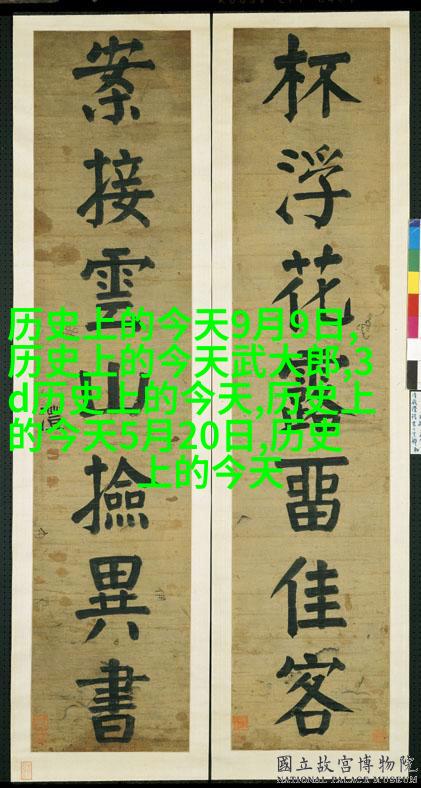 杯浮花露畱佳客
案接雲山撿異書
历史上的今天9月9日,
历史上的今天武大郎,3
d历史上的今天,历史上
的今天5月20日,历史
上的今天
國立故宮博物院
NATIONAL PALACE MUSEUM